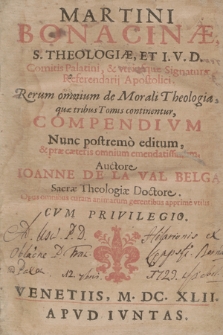 MARTINI
BONACINÆ
S. THEOLOGIÆ, ET I. V. D.
Comitis Palatini, & vtriusque Signaturæ
Referendarij Apostolici,
Rerum omnium de Morali Theologia,
quæ tribus Tomis continentur,
COMPENDIVM
Nunc postremò editum,
& præ cæteris omnium emendatissimum,
Auctore
IOANNE DE LA VAL BELGA
Sacræ Theologiæ Doctore.
CVM PRIVILEGIO.
VENETIIS, M. DC. XLII.
APVD IVNTAS.